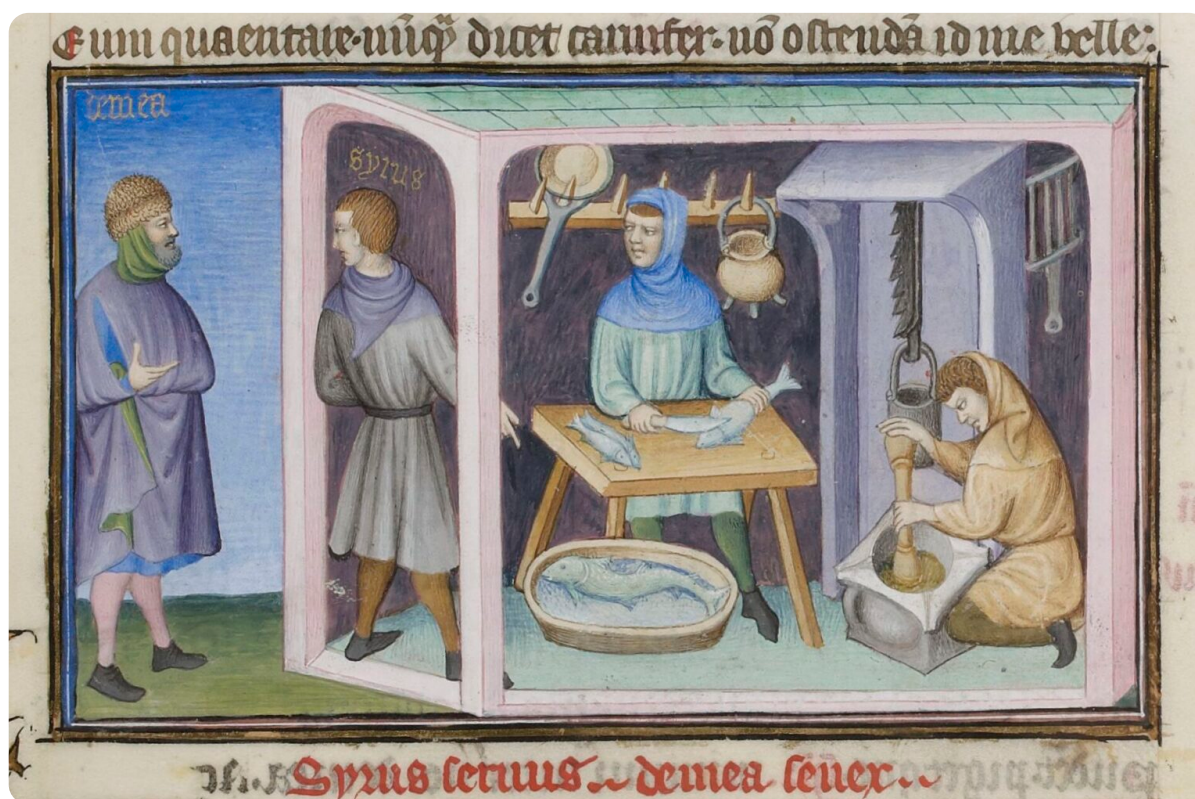 Eum quaeritare·nūq̄ dicet carnifex·nō ostendā id me velle:
demea
Syrus
Syrus seruus.. demea senex..